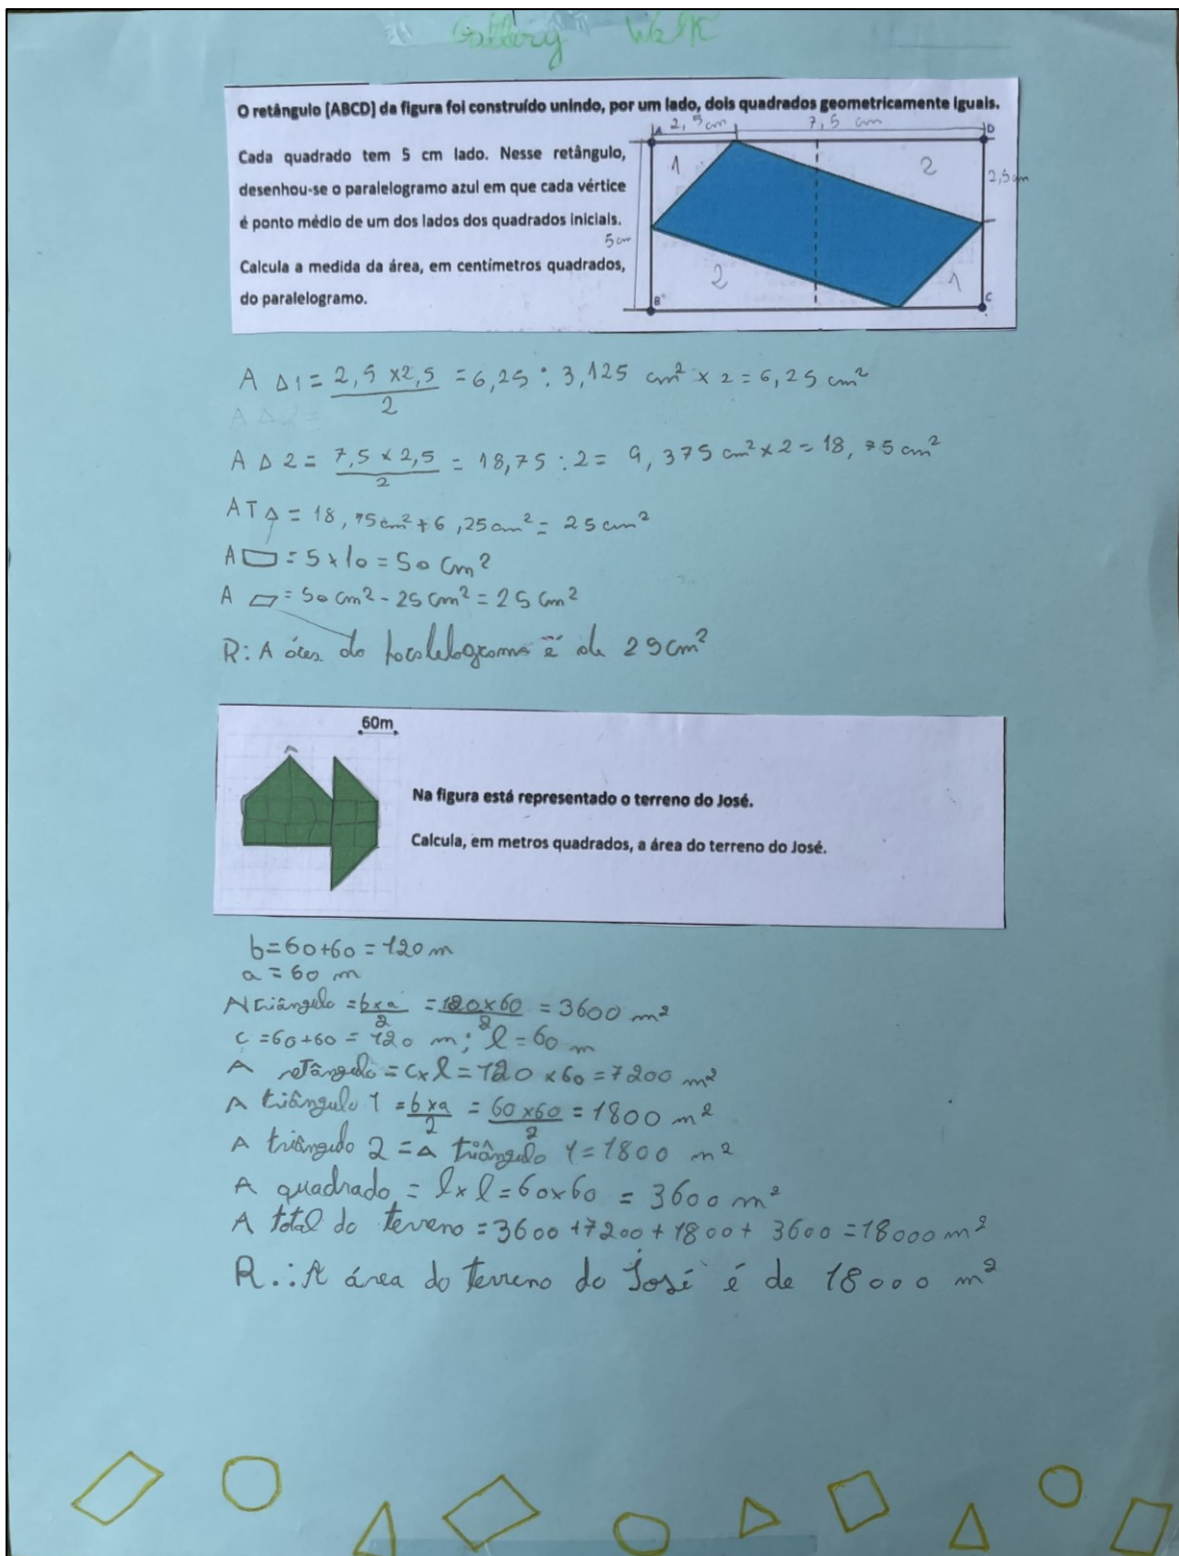 Gallery Walk
O retângulo [ABCD] da figura foi construído unindo, por um lado, dois quadrados geometricamente iguais.
Cada quadrado tem 5 cm lado. Nesse retângulo,
desenhou-se o paralelogramo azul em que cada vértice
é ponto médio de um dos lados dos quadrados iniciais.
Calcula a medida da área, em centímetros quadrados,
do paralelogramo.
A 2,5 cm 7,5 cm D
1 2 2,5 cm
5 cm
2 1
B C
A Δ1 = 2,5 x 2,5 / 2 = 6,25 : 3,125 cm² x 2 = 6,25 cm²
A Δ 2 =
A Δ 2 = 7,5 x 2,5 / 2 = 18,75 : 2 = 9,375 cm² x 2 = 18,75 cm²
A T Δ = 18,75 cm² + 6,25 cm² = 25 cm²
A ▭ = 5 x 10 = 50 cm²
A ▱ = 50 cm² - 25 cm² = 25 cm²
R: A área do é de 25 cm²
60m
Na figura está representado o terreno do José.
Calcula, em metros quadrados, a área do terreno do José.
b = 60 + 60 = 120 m
a = 60 m
A triângulo = b x a / 2 = 120 x 60 / 2 = 3600 m²
c = 60 + 60 = 120 m; l = 60 m
A retângulo = c x l = 120 x 60 = 7200 m²
A triângulo 1 = b x a / 2 = 60 x 60 / 2 = 1800 m²
A triângulo 2 = A triângulo 1 = 1800 m²
A quadrado = l x l = 60 x 60 = 3600 m²
A total do terreno = 3600 + 7200 + 1800 + 3600 = 18000 m²
R.: A área do terreno do José é de 18000 m²